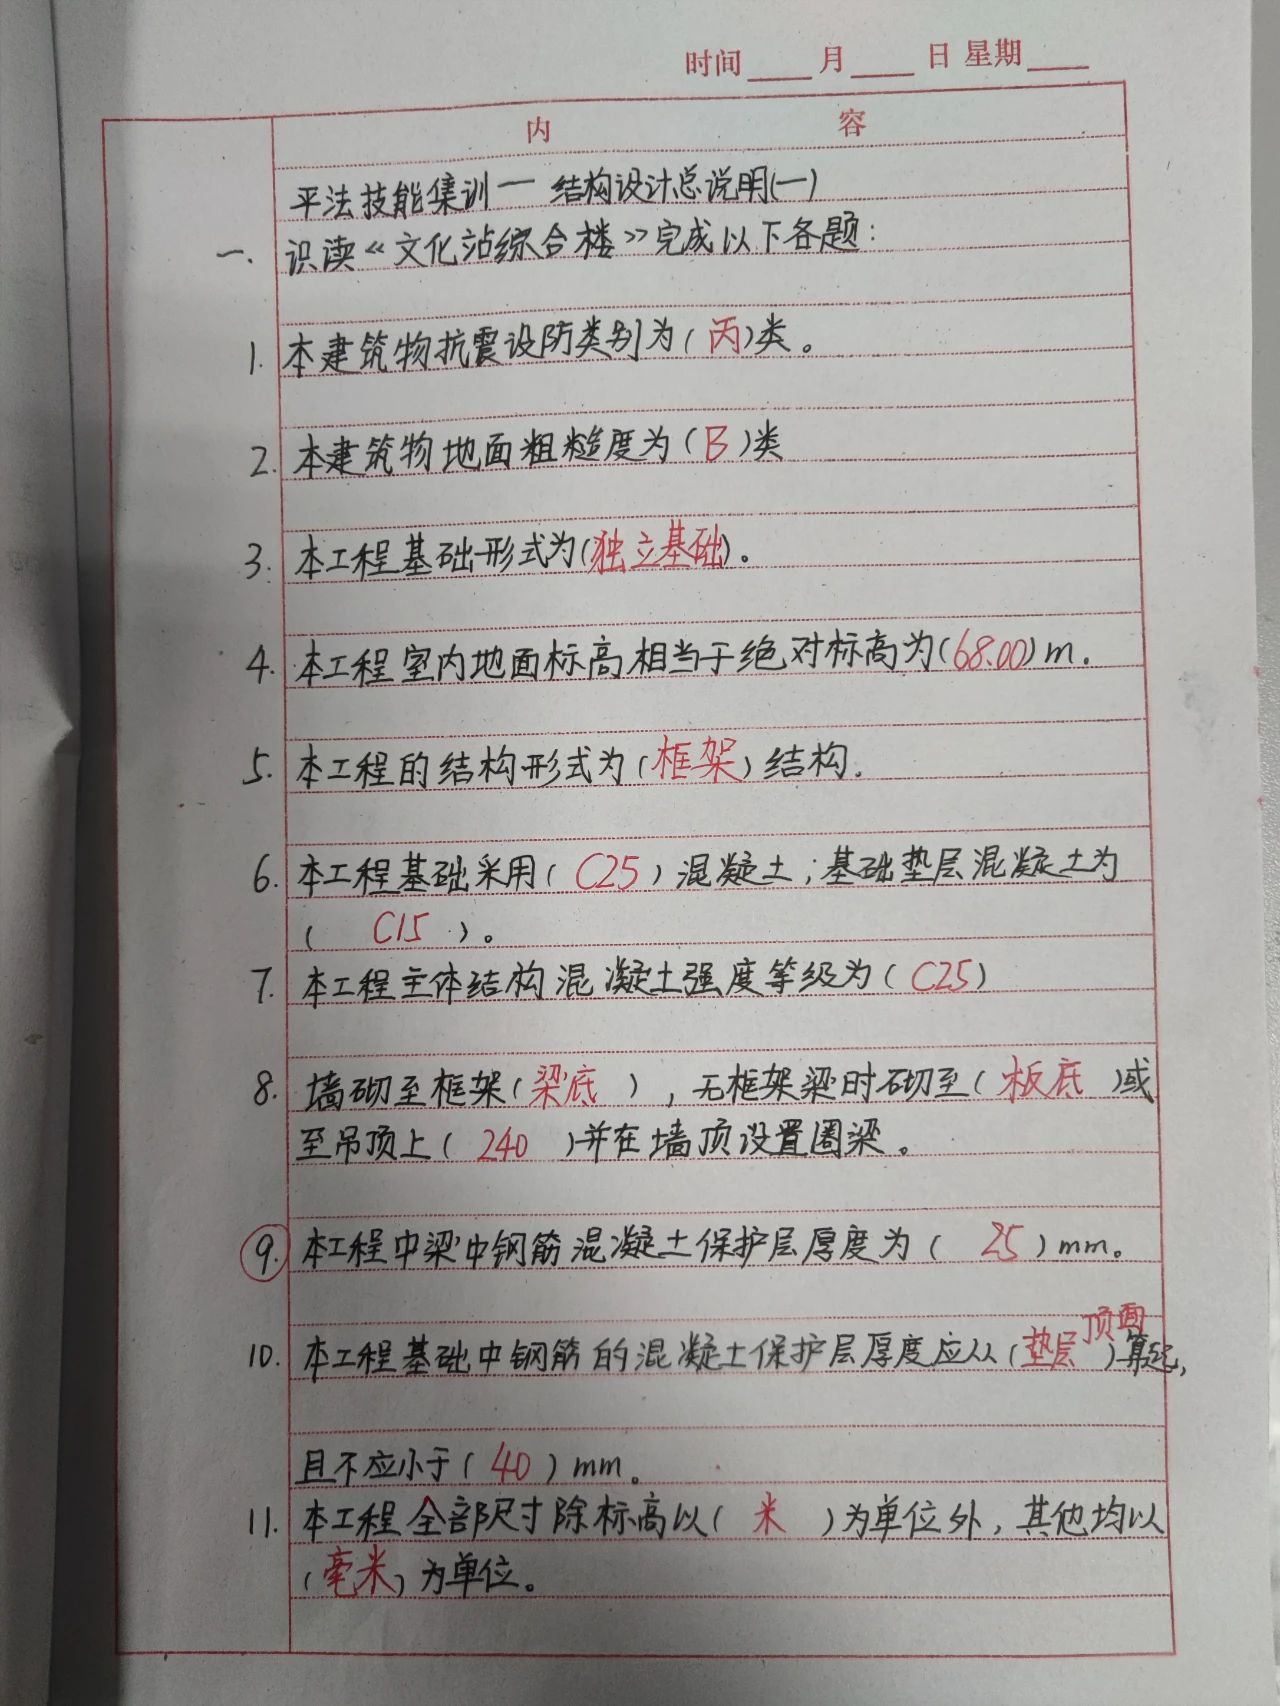 时间____月____日 星期____
内 容
平法技能集训一 结构设计总说明(一)
一. 识读《文化站综合楼》完成以下各题：
1. 本建筑物抗震设防类别为(丙)类。
2. 本建筑物地面粗糙度为(B)类
3. 本工程基础形式为(独立基础)。
4. 本工程室内地面标高相当于绝对标高为(68.00)m.
5. 本工程的结构形式为(框架)结构.
6. 本工程基础采用(C25)混凝土；基础垫层混凝土为
(C15)。
7. 本工程主体结构混凝土强度等级为(C25)
8. 墙砌至框架(梁底)，无框架梁时砌至(板底)或
至吊顶上(240)并在墙顶设置圈梁。
9. 本工程中梁中钢筋混凝土保护层厚度为(25)mm。
10. 本工程基础中钢筋的混凝土保护层厚度应从(垫层顶面)算起,
且不应小于(40)mm。
11. 本工程全部尺寸除标高以(米)为单位外，其他均以
(毫米)为单位。